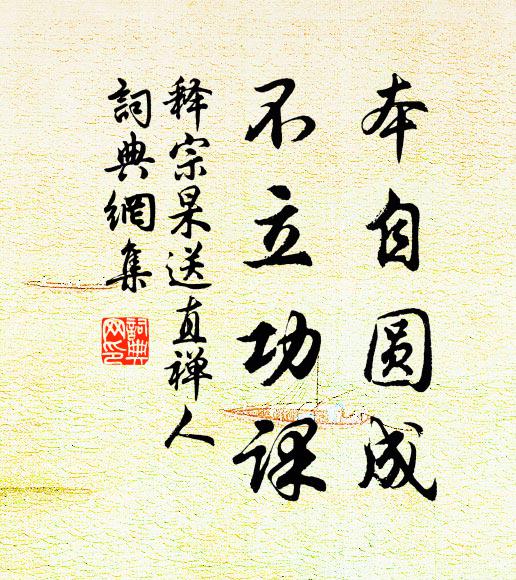 本自圆成
不立功课
释宗杲送直禅人
詞典網集
詞典网印